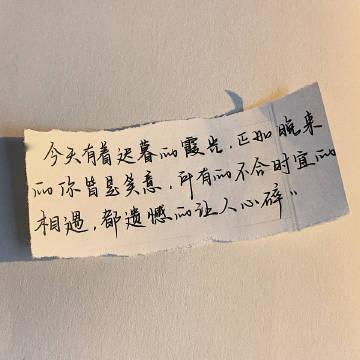 今天有着迟暮的霞光，正如晚来
的你皆是笑意，所有的不合时宜的
相遇，都遗憾的让人心碎"